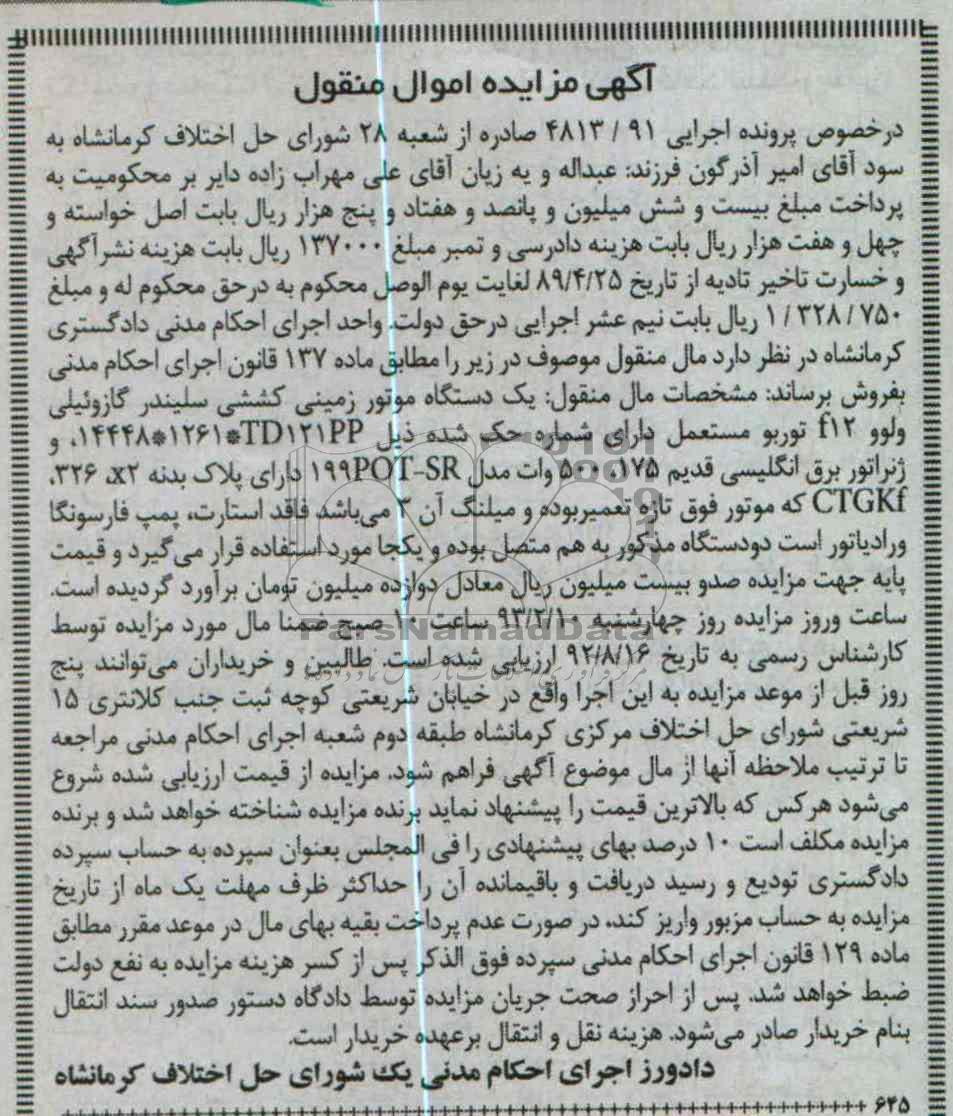 آگهی مزایده اموال منقول
درخصوص پرونده اجرایی ۹۱ / ۴۸۱۳ صادره از شعبه ۲۸ شورای حل اختلاف کرمانشاه به
سود آقای امیر آذرگون فرزند: عبداله و یه زیان آقای علی مهراب زاده دایر بر محکومیت به
پرداخت مبلغ بیست و شش میلیون و پانصد و هفتاد و پنج هزار ریال بابت اصل خواسته و
چهل و هفت هزار ریال بابت هزینه دادرسی و تمبر مبلغ ۱۳۷۰۰۰ ریال بابت هزینه نشرآگهی
و خسارت تاخیر تادیه از تاریخ ۸۹/۴/۲۵ لغایت یوم الوصل محکوم به درحق محکوم له و مبلغ
۱ / ۳۲۸ / ۷۵۰ ریال بابت نیم عشر اجرایی درحق دولت. واحد اجرای احکام مدنی دادگستری
کرمانشاه در نظر دارد مال منقول موصوف در زیر را مطابق ماده ۱۳۷ قانون اجرای احکام مدنی
بفروش برساند: مشخصات مال منقول: یک دستگاه موتور زمینی کششی سلیندر گازوئیلی
ولوو f۱۲ توربو مستعمل دارای شماره حک شده ذیل TD۱۲۱PP*۱۲۶۱*۱۴۴۴۸، و
ژنراتور برق انگلیسی قدیم ۱۷۵، ۵۰۰ وات مدل ۱۹۹POT-SR دارای پلاک بدنه x۲، ۳۲۶،
CTGKf که موتور فوق تازه تعمیربوده و میلنگ آن ۳ می‌باشد فاقد استارت، پمپ فارسونگا
ورادیاتور است دودستگاه مذکور به هم متصل بوده و یکجا مورد استفاده قرار می‌گیرد و قیمت
پایه جهت مزایده صدو بیست میلیون ریال معادل دوازده میلیون تومان برآورد گردیده است.
ساعت وروز مزایده روز چهارشنبه ۹۳/۲/۱۰ ساعت ۱۰ صبح ضمنا مال مورد مزایده توسط
کارشناس رسمی به تاریخ ۹۲/۸/۱۶ ارزیابی شده است. طالبین و خریداران می‌توانند پنج
روز قبل از موعد مزایده به این اجرا واقع در خیابان شریعتی کوچه ثبت جنب کلانتری ۱۵
شریعتی شورای حل اختلاف مرکزی کرمانشاه طبقه دوم شعبه اجرای احکام مدنی مراجعه
تا ترتیب ملاحظه آنها از مال موضوع آگهی فراهم شود. مزایده از قیمت ارزیابی شده شروع
می‌شود هرکس که بالاترین قیمت را پیشنهاد نماید برنده مزایده شناخته خواهد شد و برنده
مزایده مکلف است ۱۰ درصد بهای پیشنهادی را فی المجلس بعنوان سپرده به حساب سپرده
دادگستری تودیع و رسید دریافت و باقیمانده آن را حداکثر ظرف مهلت یک ماه از تاریخ
مزایده به حساب مزبور واریز کند. در صورت عدم پرداخت بقیه بهای مال در موعد مقرر مطابق
ماده ۱۲۹ قانون اجرای احکام مدنی سپرده فوق الذکر پس از کسر هزینه مزایده به نفع دولت
ضبط خواهد شد. پس از احراز صحت جریان مزایده توسط دادگاه دستور صدور سند انتقال
بنام خریدار صادر می‌شود. هزینه نقل و انتقال برعهده خریدار است.
دادورز اجرای احکام مدنی یک شورای حل اختلاف کرمانشاه
۶۴۵
ParsNamadData